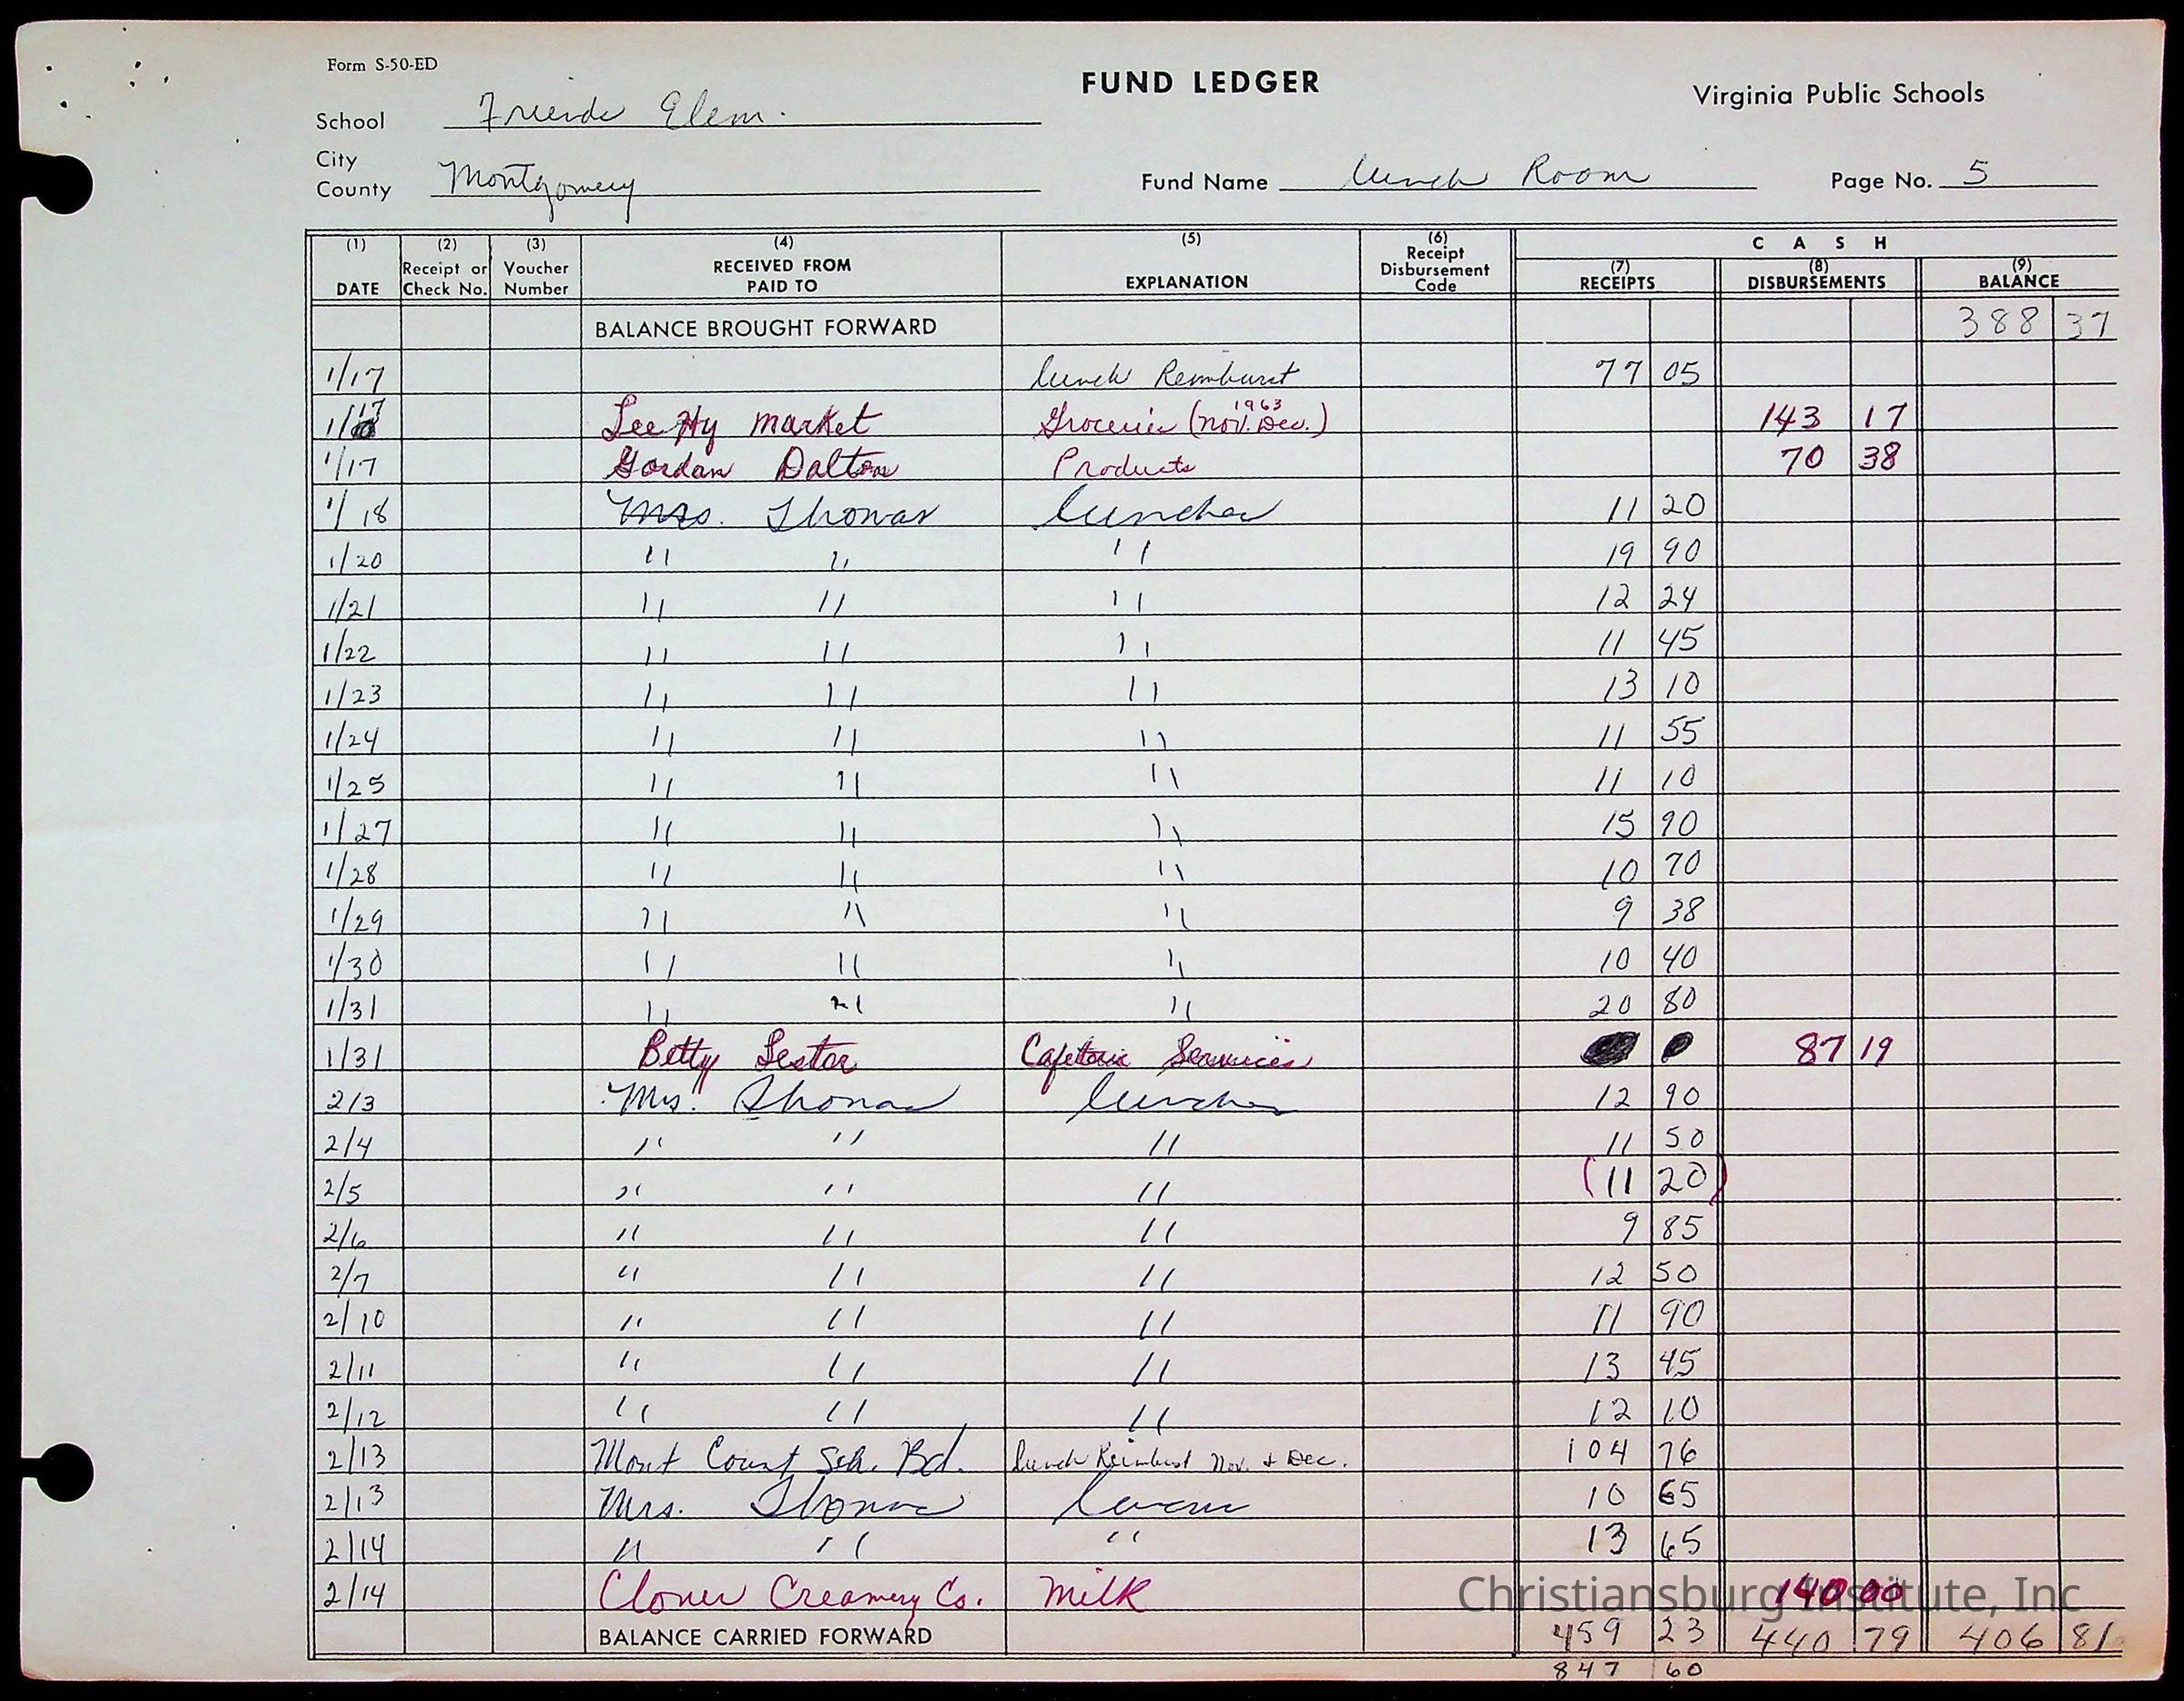 Form S-50-ED
FUND LEDGER
Virginia Public Schools
School Friends Elem.
City
County Montgomery
Fund Name Lunch Room
Page No. 5
(1) (2) (3) (4) (5) (6) C A S H
DATE Receipt or Check No. Voucher Number RECEIVED FROM PAID TO EXPLANATION Receipt Disbursement Code (7) RECEIPTS (8) DISBURSEMENTS (9) BALANCE
BALANCE BROUGHT FORWARD 388 37
1/17 lunch Reimburst 77 05
1/17 Lee Hy market Groceries (Nov. Dec.) 1963 143 17
1/17 Gordan Dalton Products 70 38
1/18 Mrs. Thomas lunches 11 20
1/20 " " " 19 90
1/21 " " " 12 24
1/22 " " " 11 45
1/23 " " " 13 10
1/24 " " " 11 55
1/25 " " " 11 10
1/27 " " " 15 90
1/28 " " " 10 70
1/29 " " " 9 38
1/30 " " " 10 40
1/31 " " " 20 80
1/31 Betty Lester Cafeteria Services 87 19
2/3 Mrs. Thomas lunches 12 90
2/4 " " " 11 50
2/5 " " " (11 20)
2/6 " " " 9 85
2/7 " " " 12 50
2/10 " " " 11 90
2/11 " " " 13 45
2/12 " " " 12 10
2/13 Mont Count Sch. Bd. lunch Reimburst Nov. & Dec. 104 76
2/13 Mrs. Thomas 10 65
2/14 " " " 13 65
2/14 Clover Creamery Co. Milk 140 00
Christiansburg Institute, Inc
BALANCE CARRIED FORWARD 459 23 440 79 406 81
847 60